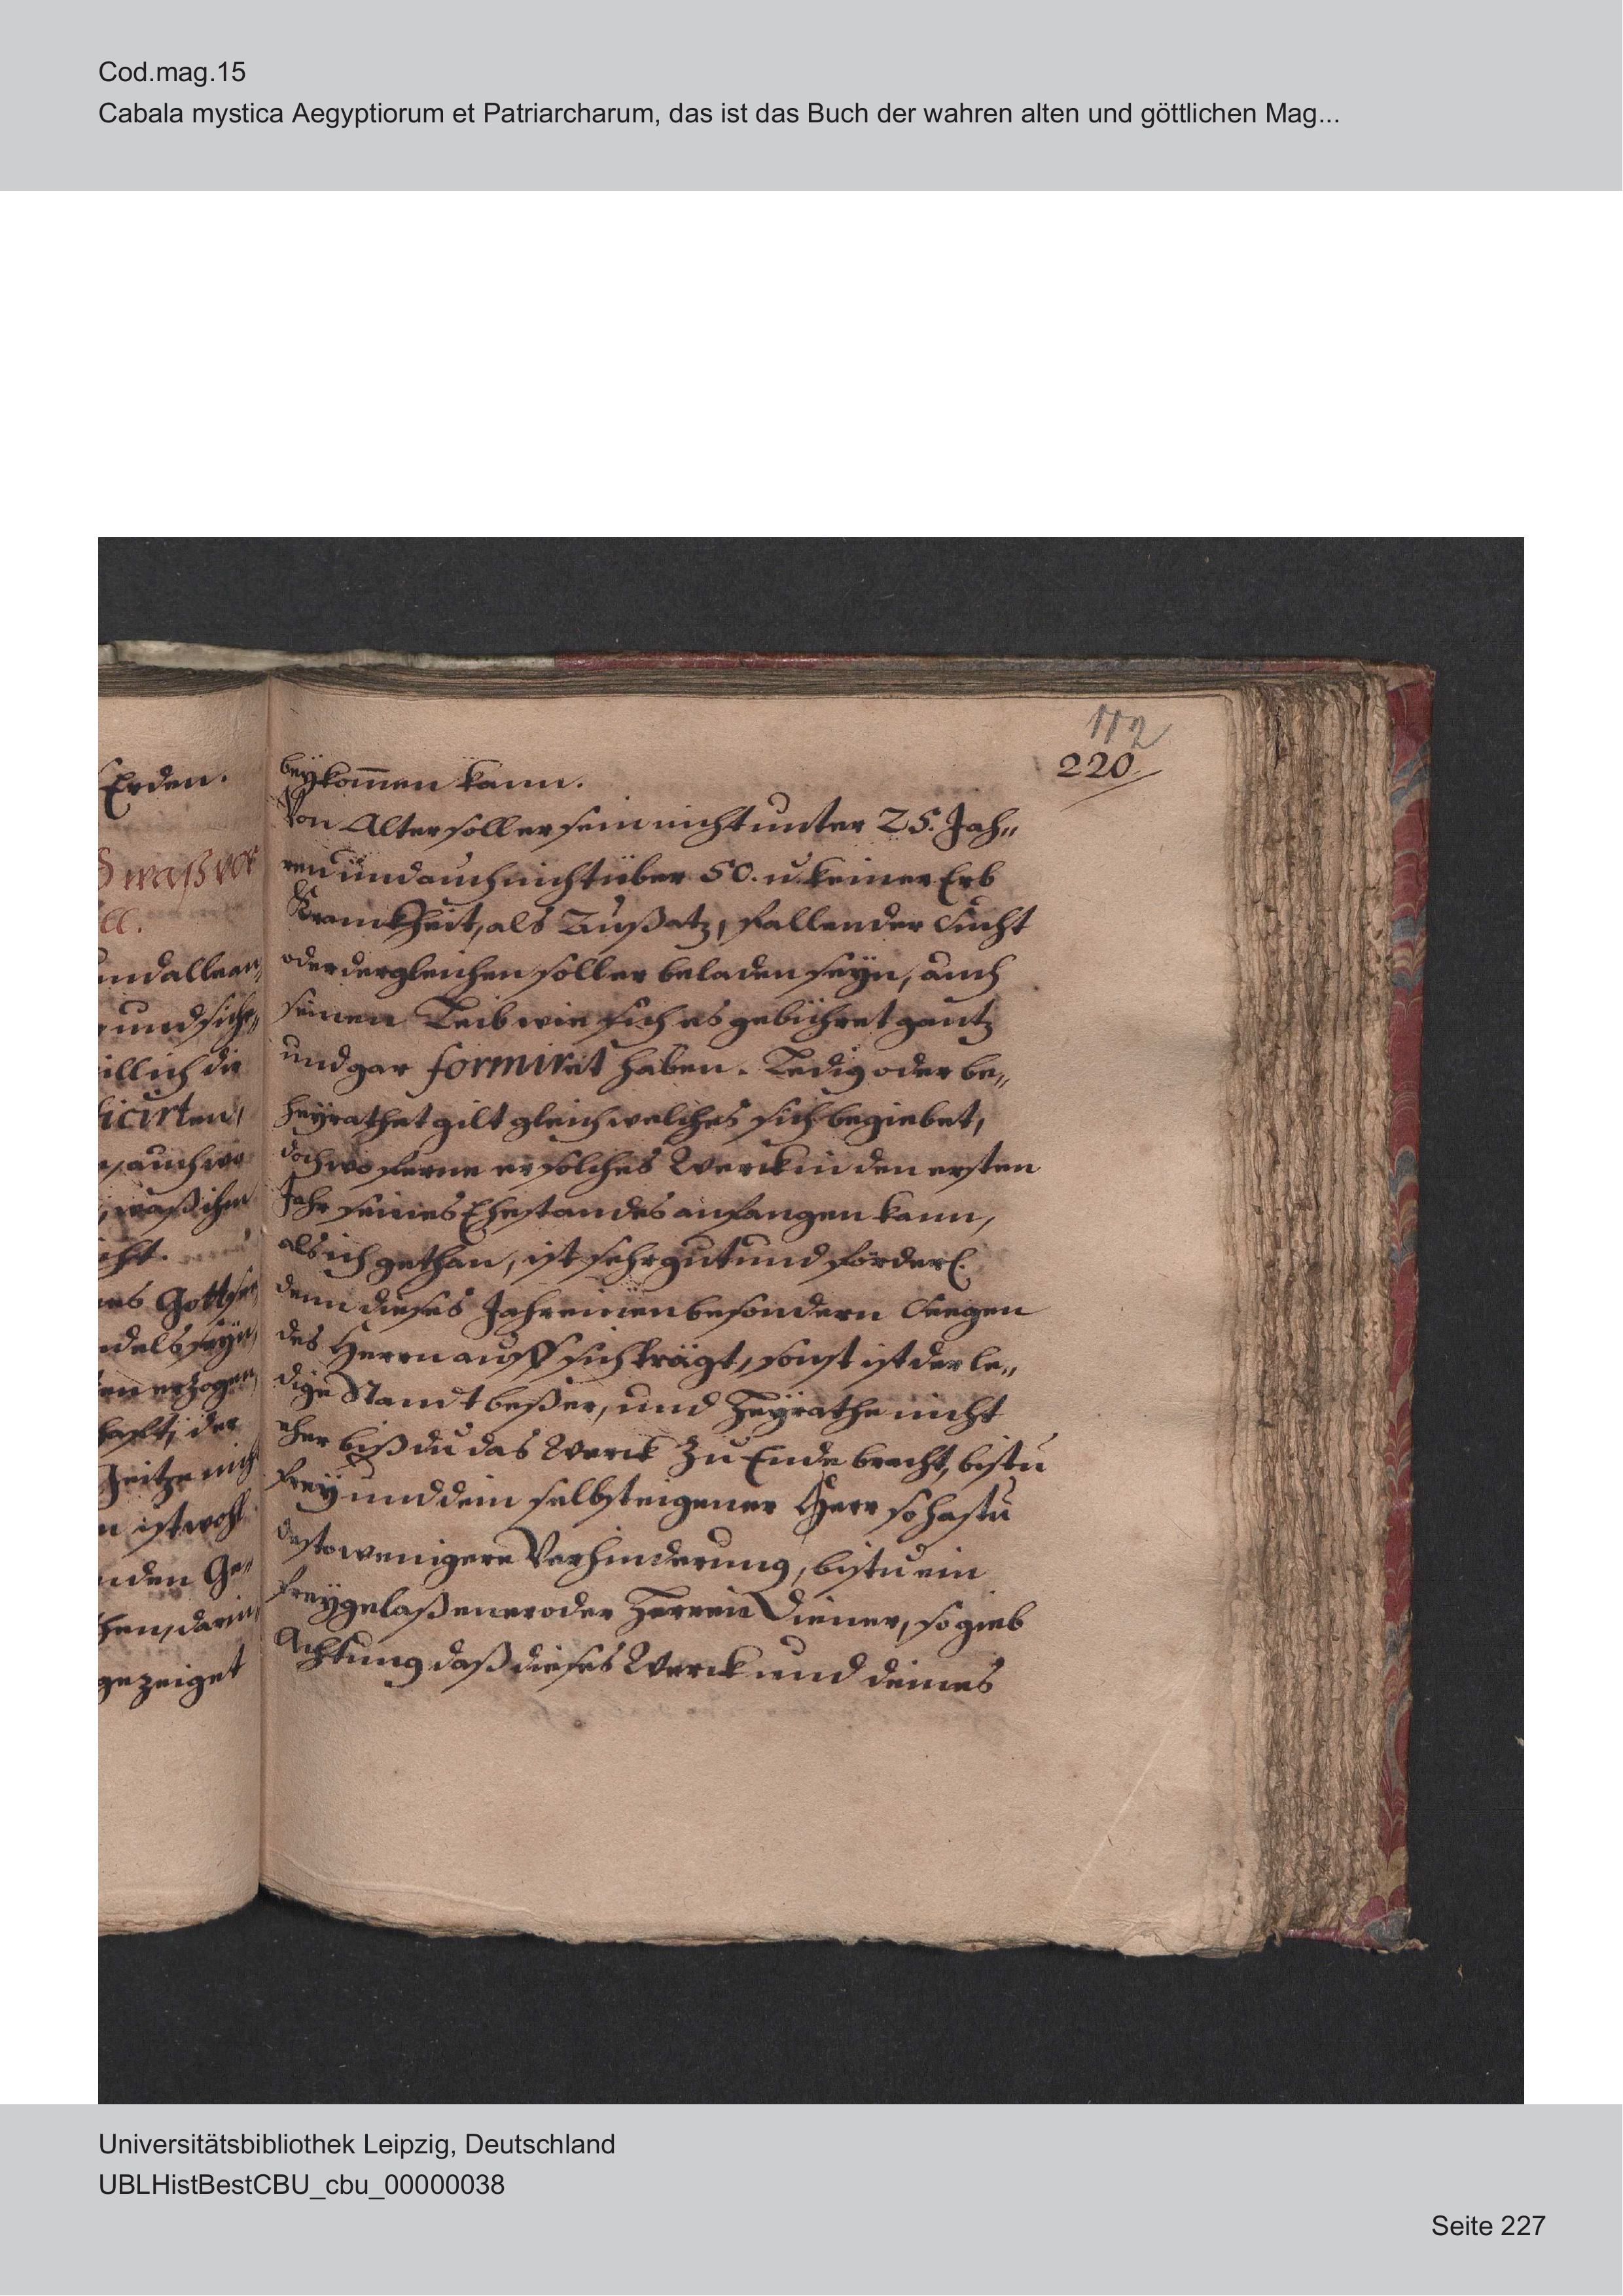 Cod.mag.15
Cabala mystica Aegyptiorum et Patriarcharum, das ist das Buch der wahren alten und göttlichen Mag...
112
220
Erden.
waß vor
ll.
und alle an„
und sich„
illich die
licirten,
auch wo
waß ihm
cht.
es Gottse
delß seyn,
en erzogen,
hafft, der
Geitze nich
n ist wohl
nden Ge„
hen, darin,
gezeiget
beÿkom̄en kann.
Von Alter soll er sein nicht unter 25. Jah„
ren und auch nicht über 50. u. keiner Erb
Kranckheit, als Außatz, fallender Sucht
oder dergleichen soll er beladen seÿn, auch
seinen Leib wie sich es gebühret gantz
und gar formiret haben. Ledig oder be„
heÿrathet gilt gleich welches sich begiebet,
doch wo ferne er solches Werck in den ersten
Jahr seines Ehestandes anfangen kann,
als ich gethan, ist sehr gut und förderl.
denn dieses Jahr einen besondern Seegen
des Herrn auff sich trägt, sonst ist der le„
dige Standt beßer, und Heÿrathe nicht
eher biß du das Werck Zu Ende bracht, bistu
freÿ und dein selbst eigener Herr so hastu
desto wenigere Verhinderung, bistu ein
freÿgelaßener oder Herren Diener, so gieb
Achtung daß dieses Werck und deines
Universitätsbibliothek Leipzig, Deutschland
UBLHistBestCBU_cbu_00000038
Seite 227